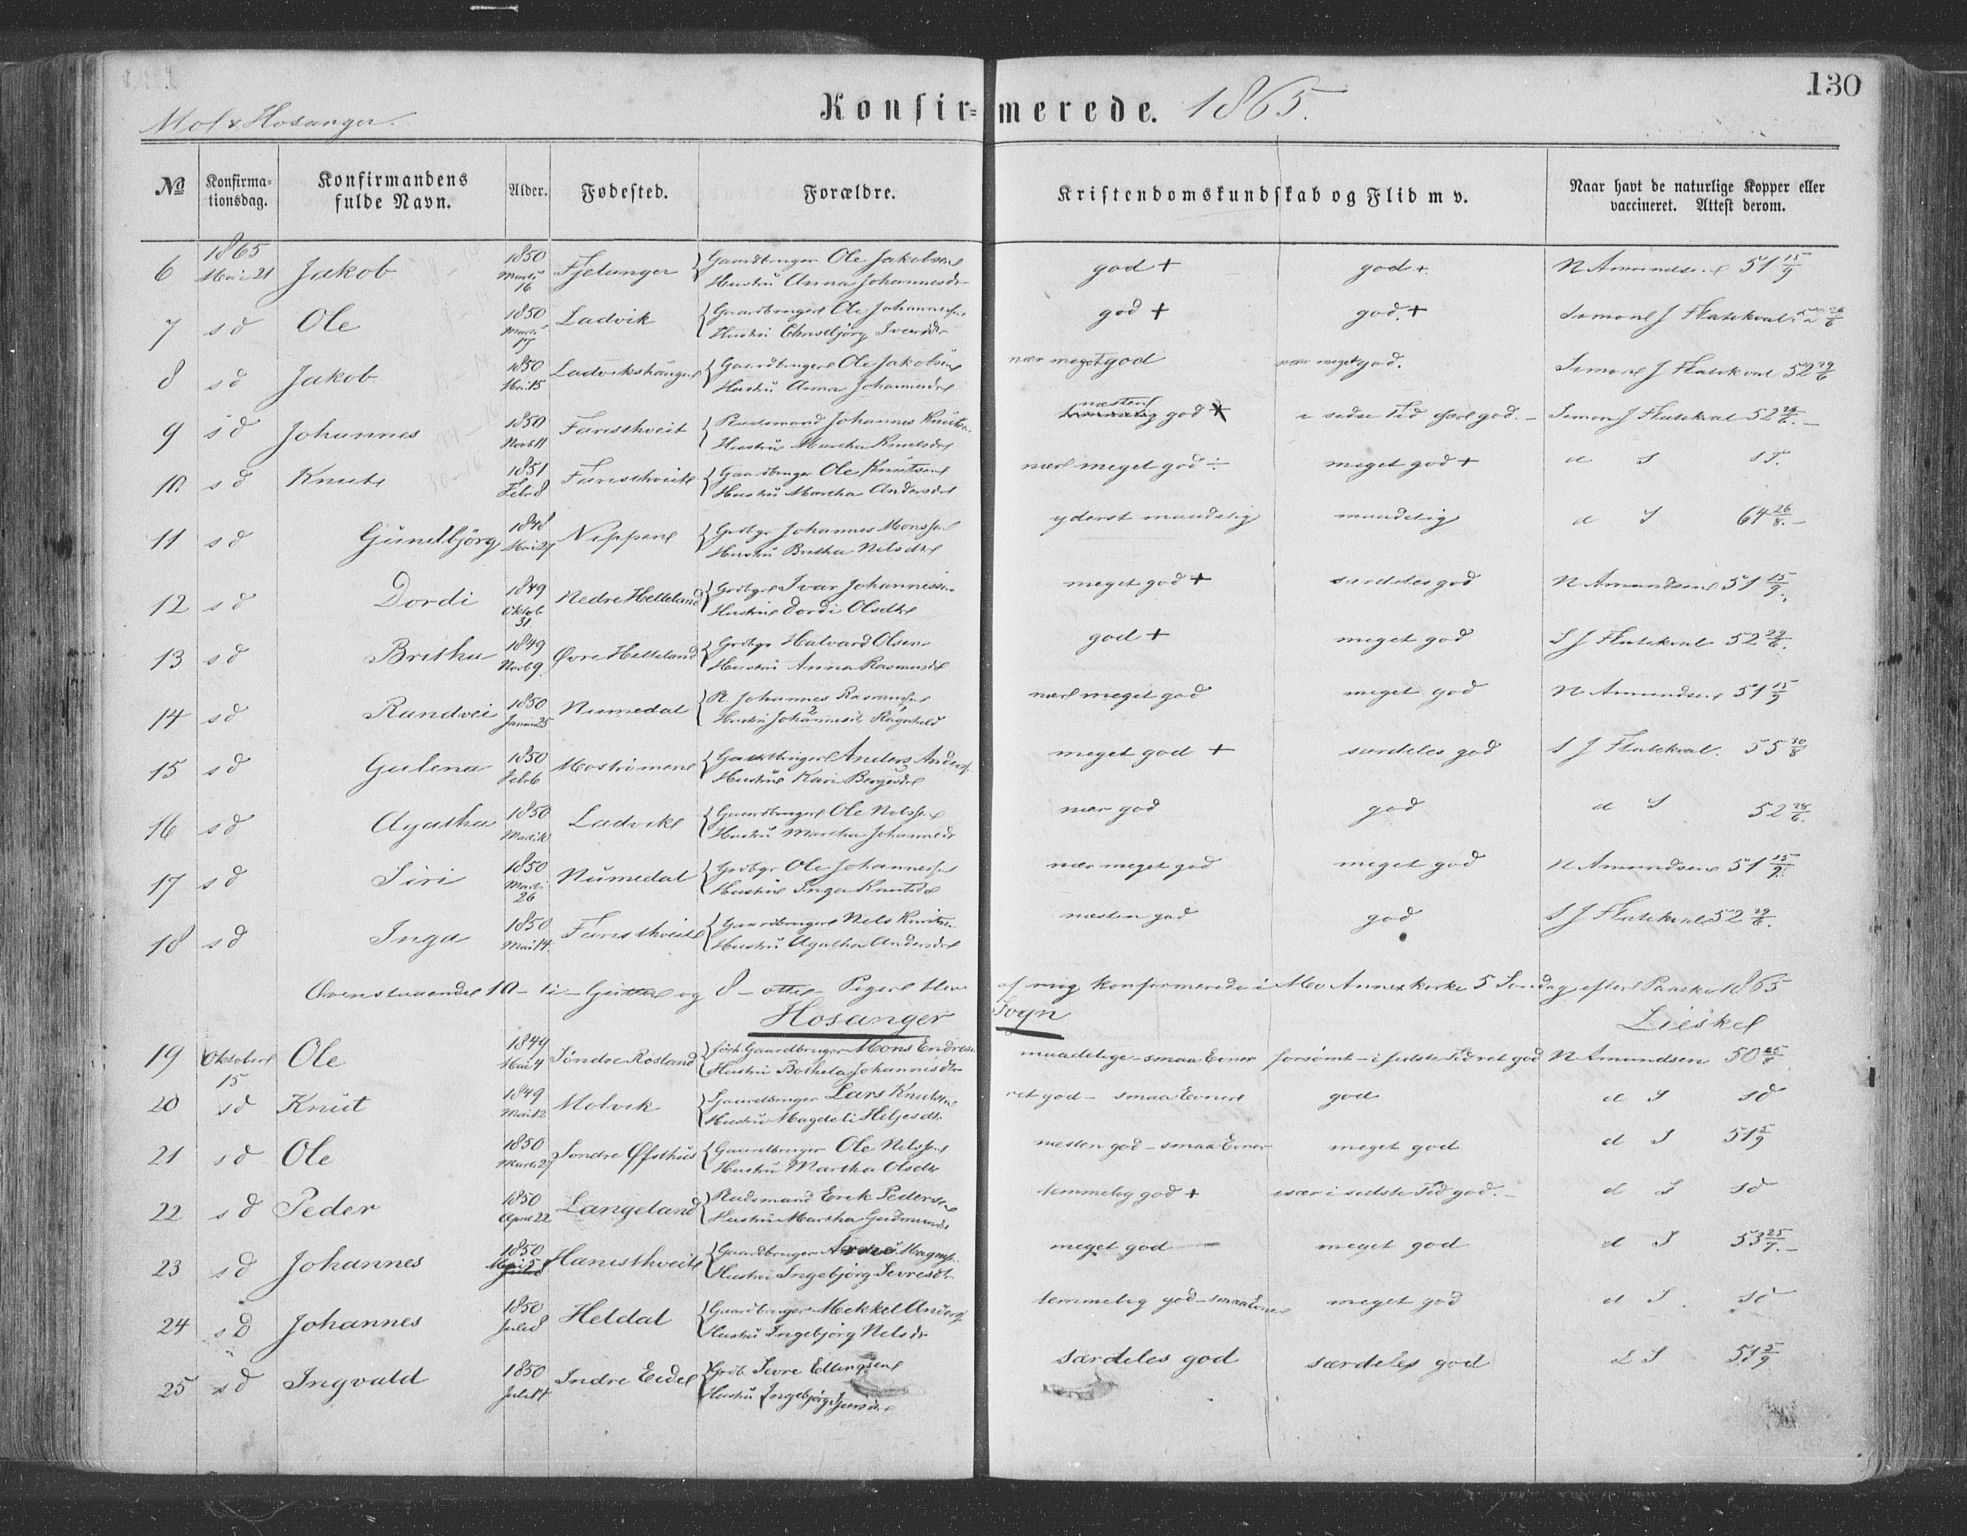 130
Mo & Hosanger.
Konfirmerede. 1865.
№ Konfirmationsdag. Konfirmandens fulde Navn. Alder. Fødested. Forældre. Kristendomskundskab og Flid m v. Naar havt de naturlige Kopper eller vaccineret. Attest derom.
6 1865 Mai 21 Jakob 1850 Marts 16 Fjelanger Gaardbruger Ole Jakobsen Hustru Anna Johannesdr god + god + N Amundsen 51 15/9
7 sd Ole 1850 Marts 17 Ladvik Gaardbruger Ole Johannessen Hustru Iversdtr god + god + Simon J Flatekval
8 sd Jakob 1850 Mai 15 Gaardbruger Ole Jakobsen Hustru Anna Johannesdr nær meget god nær meget god. Simon J Flatekval 52 29/6
9 sd Johannes 1850 Novb 11 Faresthveit Pladsmand Johannes Knutsen Hustru Martha Knutsdr næsten god i sidste Tid god. - Simon J Flatekval 52 29/6. -
10 sd Knut 1851 Feb 8 Faresthveit Gaardbruger Ole Knutsen Hustru Martha Andersdr nær meget god ÷ meget god + d S sd.
11 sd Gundbjörg 1848 Mai 27 Nippen Grdbgr Johannes Monssen Hustru Britha Nilsdtr yderst maadelig maadelig d S 64 26/8. -
12 sd Dordi 1849 Oktob 31 Nedre Helleland Grdbgr Ivar Johannessen Hustru Dordi Olsdtr meget god + særdeles god N Amundsen 51 15/9.
13 sd Britha 1849 Novb 9. Øvre Helleland Grdbgr Halvard Olsen Hustru Anna Rasmusdr god + meget god S J Flatekval 52 29/6.
14 sd Randvei 1850 Januar 25 Numedal P. Johannes Rasmussen Hustru Johannesdr Ragnhild nær meget god meget god N Amundsen 51 15/9
15 sd Gulena 1850 Feb 6 Mostrømmen Gaardbruger Anders Anders. Hustru Kari Børgesdr meget god + særdeles god S J Flatekval. 55 30/8
16 sd Agatha 1850 Ladvik Gaardbruger Ole Nilssen Hustru Martha Johannesdr nær god god d S 52 29/6.
17 sd Siri 1850 Marts 26 Numedal Grdbgr Ole Johannessen Hustru Inga Knutsdr nær meget god meget god N Amundsen 51 15/9.
18 sd Inga 1850 Mai 14. Faresthveit Gaardbruger Nils Knutsen Hustru Agatha Andersdr næsten god god S J Flatekval 52 29/6.
Ovenstaaende 10 - ti - Gutter og 8 - otte - Piger blev af mig konfirmerede i Mo Annexkirke 5 Søndag efter Paaske 1865
Hosanger Sogn
19 Oktober 15 Ole 1849 Mai 4 Søndre Rosland Gaardbruger Mons Endresen Hustru Bothela Johannesdtr maadelige - smaa Evner forsømt - i sidste Tid ret god N Amundsen 50
20 sd Knut 1849 Mai 12 Molvik Gaardbruger Lars Knutsen Hustru Magdeli Helgesdtr ret god - smaa Evner god d S sd
21 sd Ole 1850 Marts 27 Søndre Øfsthus Gaardbruger Ole Nilssen Hustru Martha Olsdtr næsten god - smaa Evner meget god d S 51 5/9
22 sd Peder 1850 April 22 Langeland Pladsmand Erik Pedersen Hustru Martha Gudmundsdr temmelig god + især i sidste Tid god. - d S sd
23 sd Johannes 1850 Mai 5 Hanisthveit Gaardbruger Magnes. Hustru Ingebjørg Sevresdtr meget god - meget god d S 53 25/7. -
24 sd Johannes 1850 Juli 8 Heldal Gaardbruger Mekkel Anders. Hustru Ingebjørg Nilsdr temmelig god - smaa Evner meget god d S. sd
25 sd Ingvald 1850 Juli 14 Indre Eide Grdb. Sevre Ellingsen Hustru Ingebjørg særdeles god særdeles god d S 51 5/9